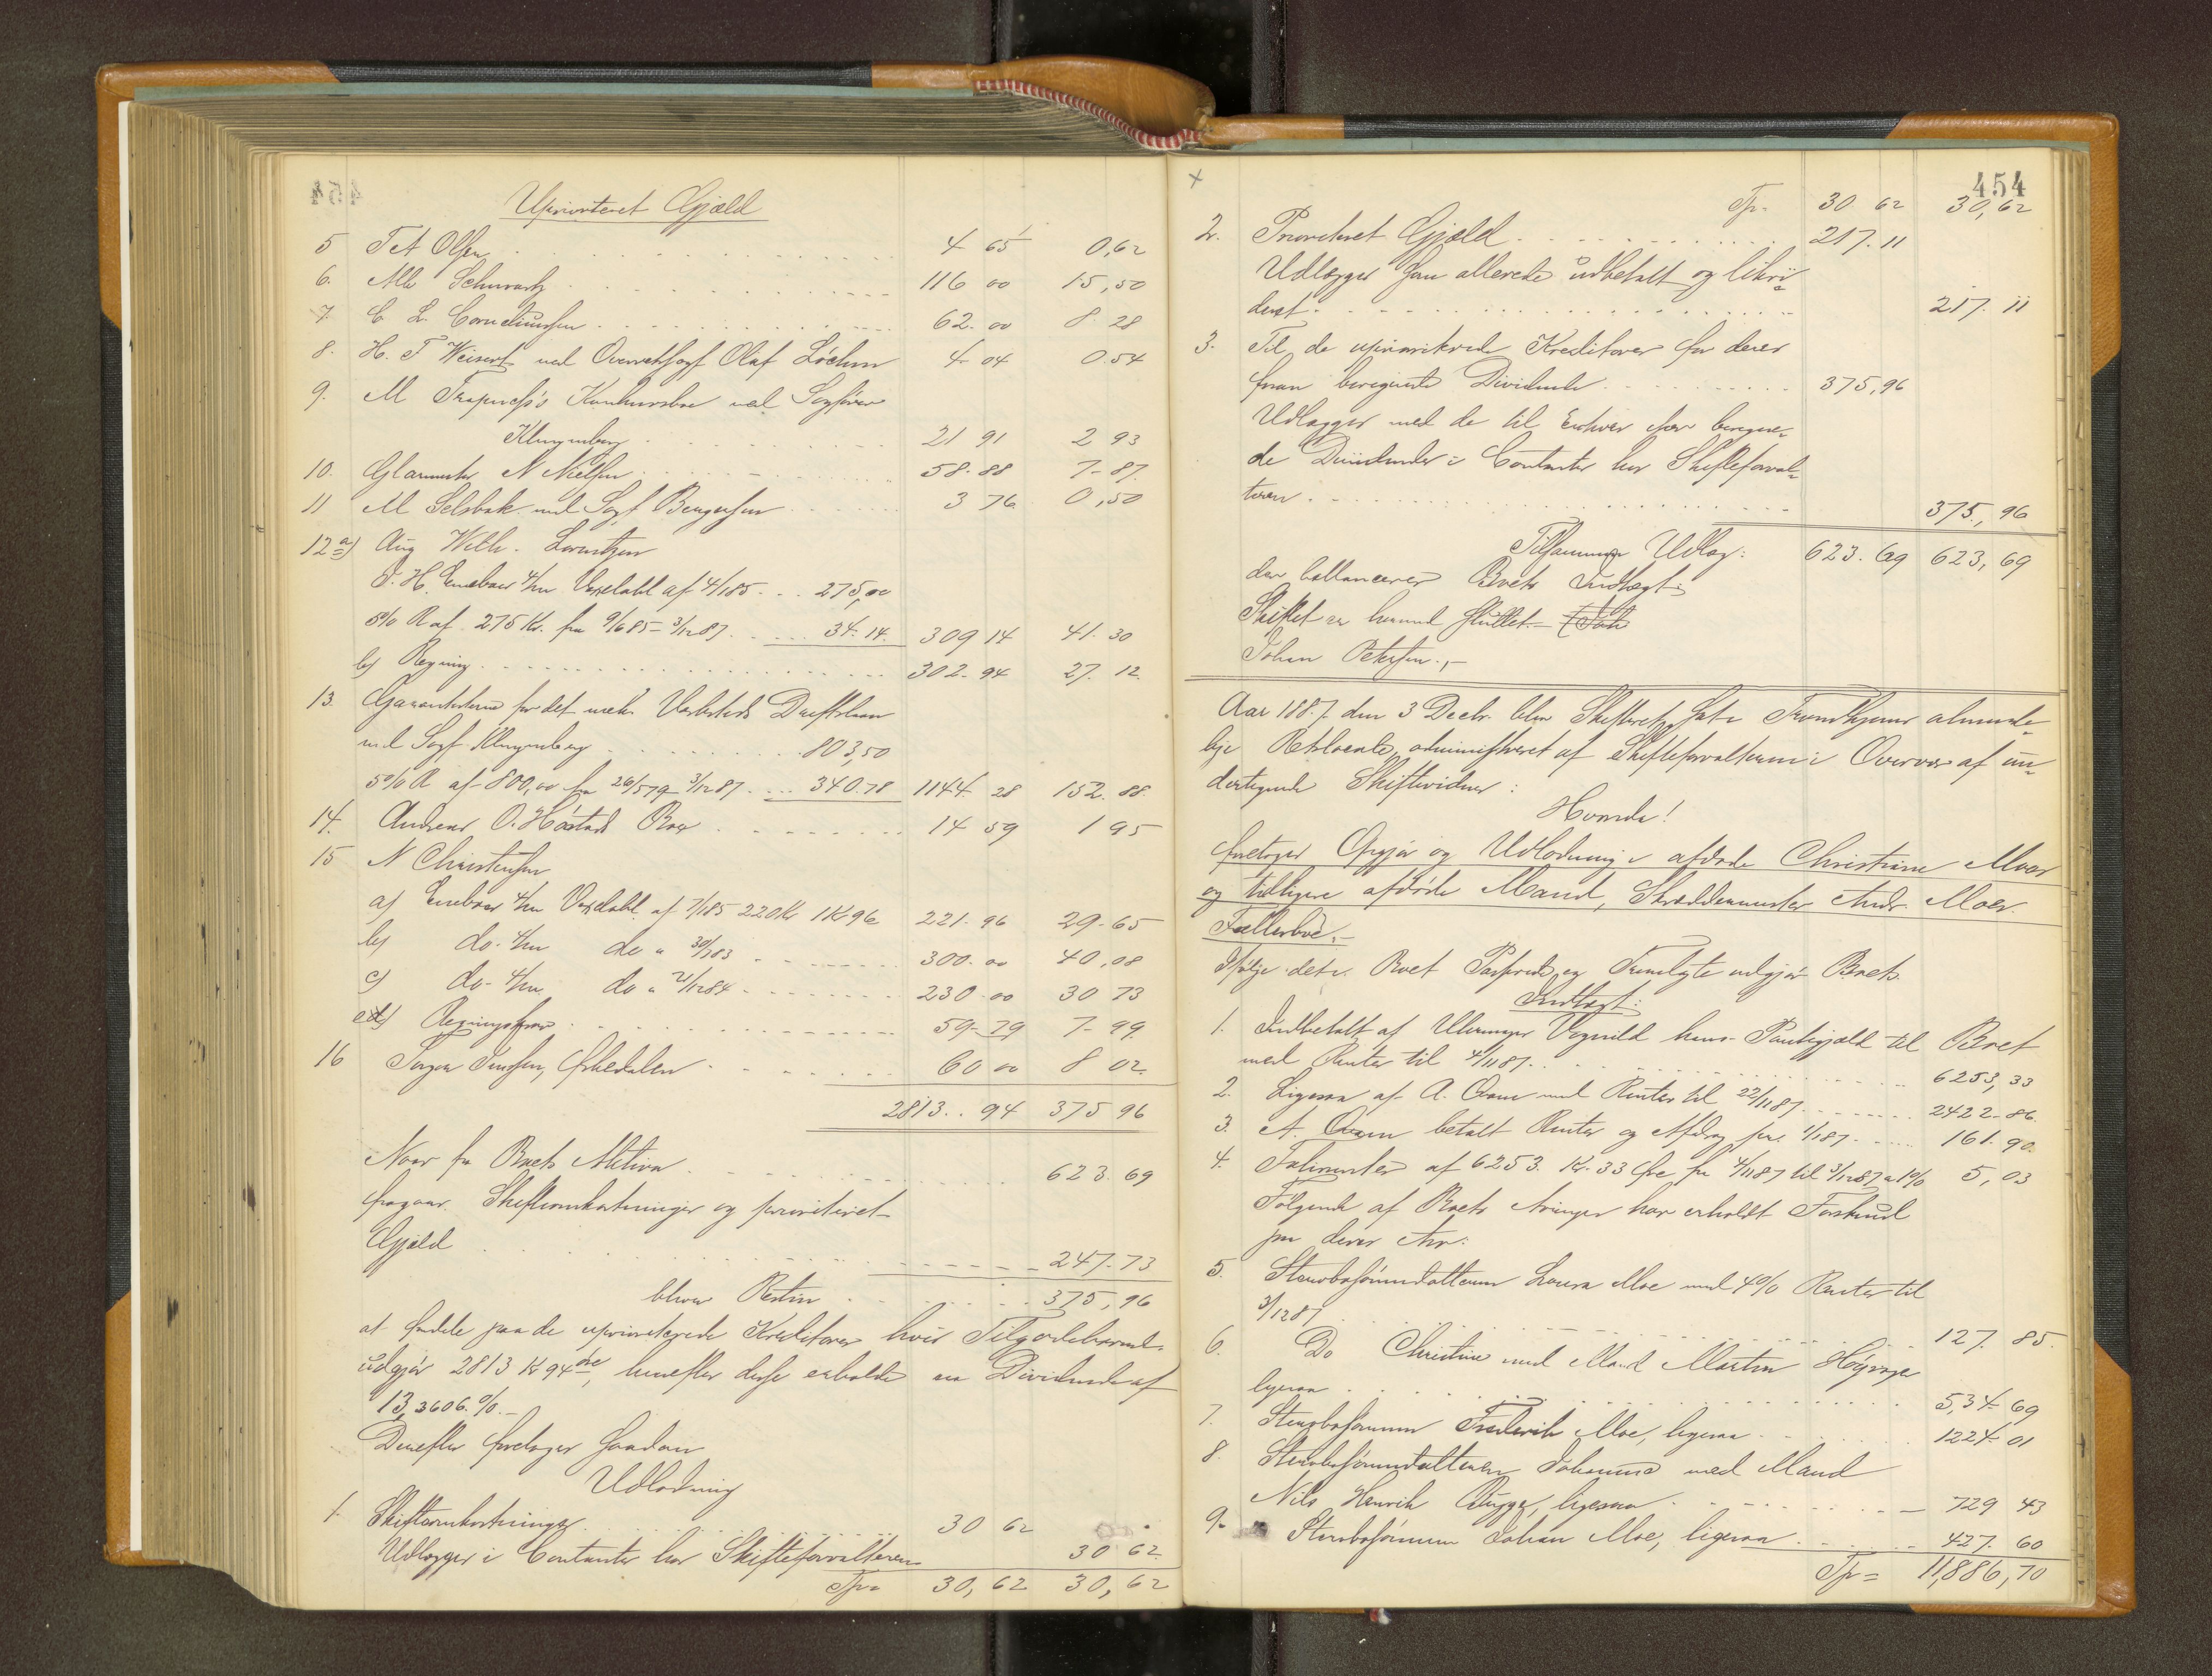 Uprioriteret Gjæld
5 T A Olsen 4 65 0,62
6. Schwartz 116 00 15,50
7. C L. Corneliussen 62.00 8.28
8. H. T Weisert ved Overretssagf Olaf 4.04 0.54
9. M Konkursbo ved Sagfører
Klingenberg 21 91 2 93
10. Glarmester N Nielsen 58.88 7-87.
11 M Selsbak ved Sagf 3 76 0,50
12 a) Aug Wilh. Lorentzen
af 4/1 85 275,00
5% R af 275 Kr. fra 9/6 85 - 3/12 87 34-14. 309 14 41.30
b) Regning 302-94 27.12.
13. Garantisterne for det mek. Værksteds Driftslaan
ved Sagf. Klingenberg 803,50
5% R af 800,00 fra 26/5 79 3/12 87 340.78 1144. 28 152.88.
14. Andreas O. Høstads Bo 14 59 1 95
15 N Christensen
a) af 7/1 85 220 Kr 1 Kr 96 221.96 29-65
b) do. do " 30/1 83 300.00 40,08
c) do. do " 2/12 84 230.00 30 73
d) Regningskrav 59-79 7-99.
16 Jørgen Jensen, Orkedalen 60 00 8 02.
2813.. 94 375 96
Naar fra Boets Aktiva 623.69
fragaar Skifteomkostninger og prioriteret
Gjæld 247.73
bliver Resten 375,96
at fordele paa de uprioriterede Kreditorer hvis Tilgodehavende
udgjør 2813 Kr 94 øre, hvorefter disse erholde en Dividende af
13,3606.%.-
Derefter foretages saadan
Udlodning
1. Skifteomkostninger 30 62
Udlægges i Contanter hos Skifteforvalteren 30 62.
Tp= 30,62 30,62
454
Tp= 30.62 30,62
2. Prioriteret Gjæld 217.11
Udlægges som allerede udbetalt og likvi-
deret 217.11
3. Til de uprioriterede Kreditorer for deres
foran beregnede Dividende 375,96
Udlægges med de til Enhver især beregne-
de Dividender i Contanter hos Skifteforval-
teren 375,96
Tilsammen Udlæg: 623.69 623,69
der ballancerer Boets Indtægt.
Skiftet er hermed sluttet.-
Johan Petersen.,-
Aar 1887. den 3 Decbr. blev Skifteret sat i Trondhjems alminde-
lige Retslocale, administreret af Skifteforvalteren i Overvær af un-
dertegnede Skiftevidner:
Hvorda!
foretoges Opgjør og Udlodning i afdøde Christine Moes
og tidligere afdøde Mand, Skræddermester Andr. Moes
Fællesbo.-
Ifølge det i Boet Passerede og Fremlagte udgjør Boets
Indtægt:
1. Indbetalt af Vognild hans Pantegjæld til Boet
med Renter til 4/11 87 6253,33
2. Ligesaa af A. Qvam med Renter til 22/11 87 2422-86.
3. A. Qvam betalt Renter og Afdrag pr. 1/1 87 161.90.
4. af 6253. Kr. 33 Øre fra 4/11 87 til 3/12 87 a 1% 5,03
Følgende af Boets Arvinger har erholdt Forskud
paa deres Arv:
5. Stervbosønnedatteren Laura Moe med 4% Renter til
3/12 87 127.85.
6. Do Christine med Mand Martin
ligesaa 534 69
7. Stervbosønnen Frederik Moe, ligesaa 1224 01
8. Stervbosønnedatteren Johanna med Mand
Nils Henrik Bugge, ligesaa 729 43
9. Stervbosønnen Johan Moe, ligesaa 427. 60
Tp= 11,886,70